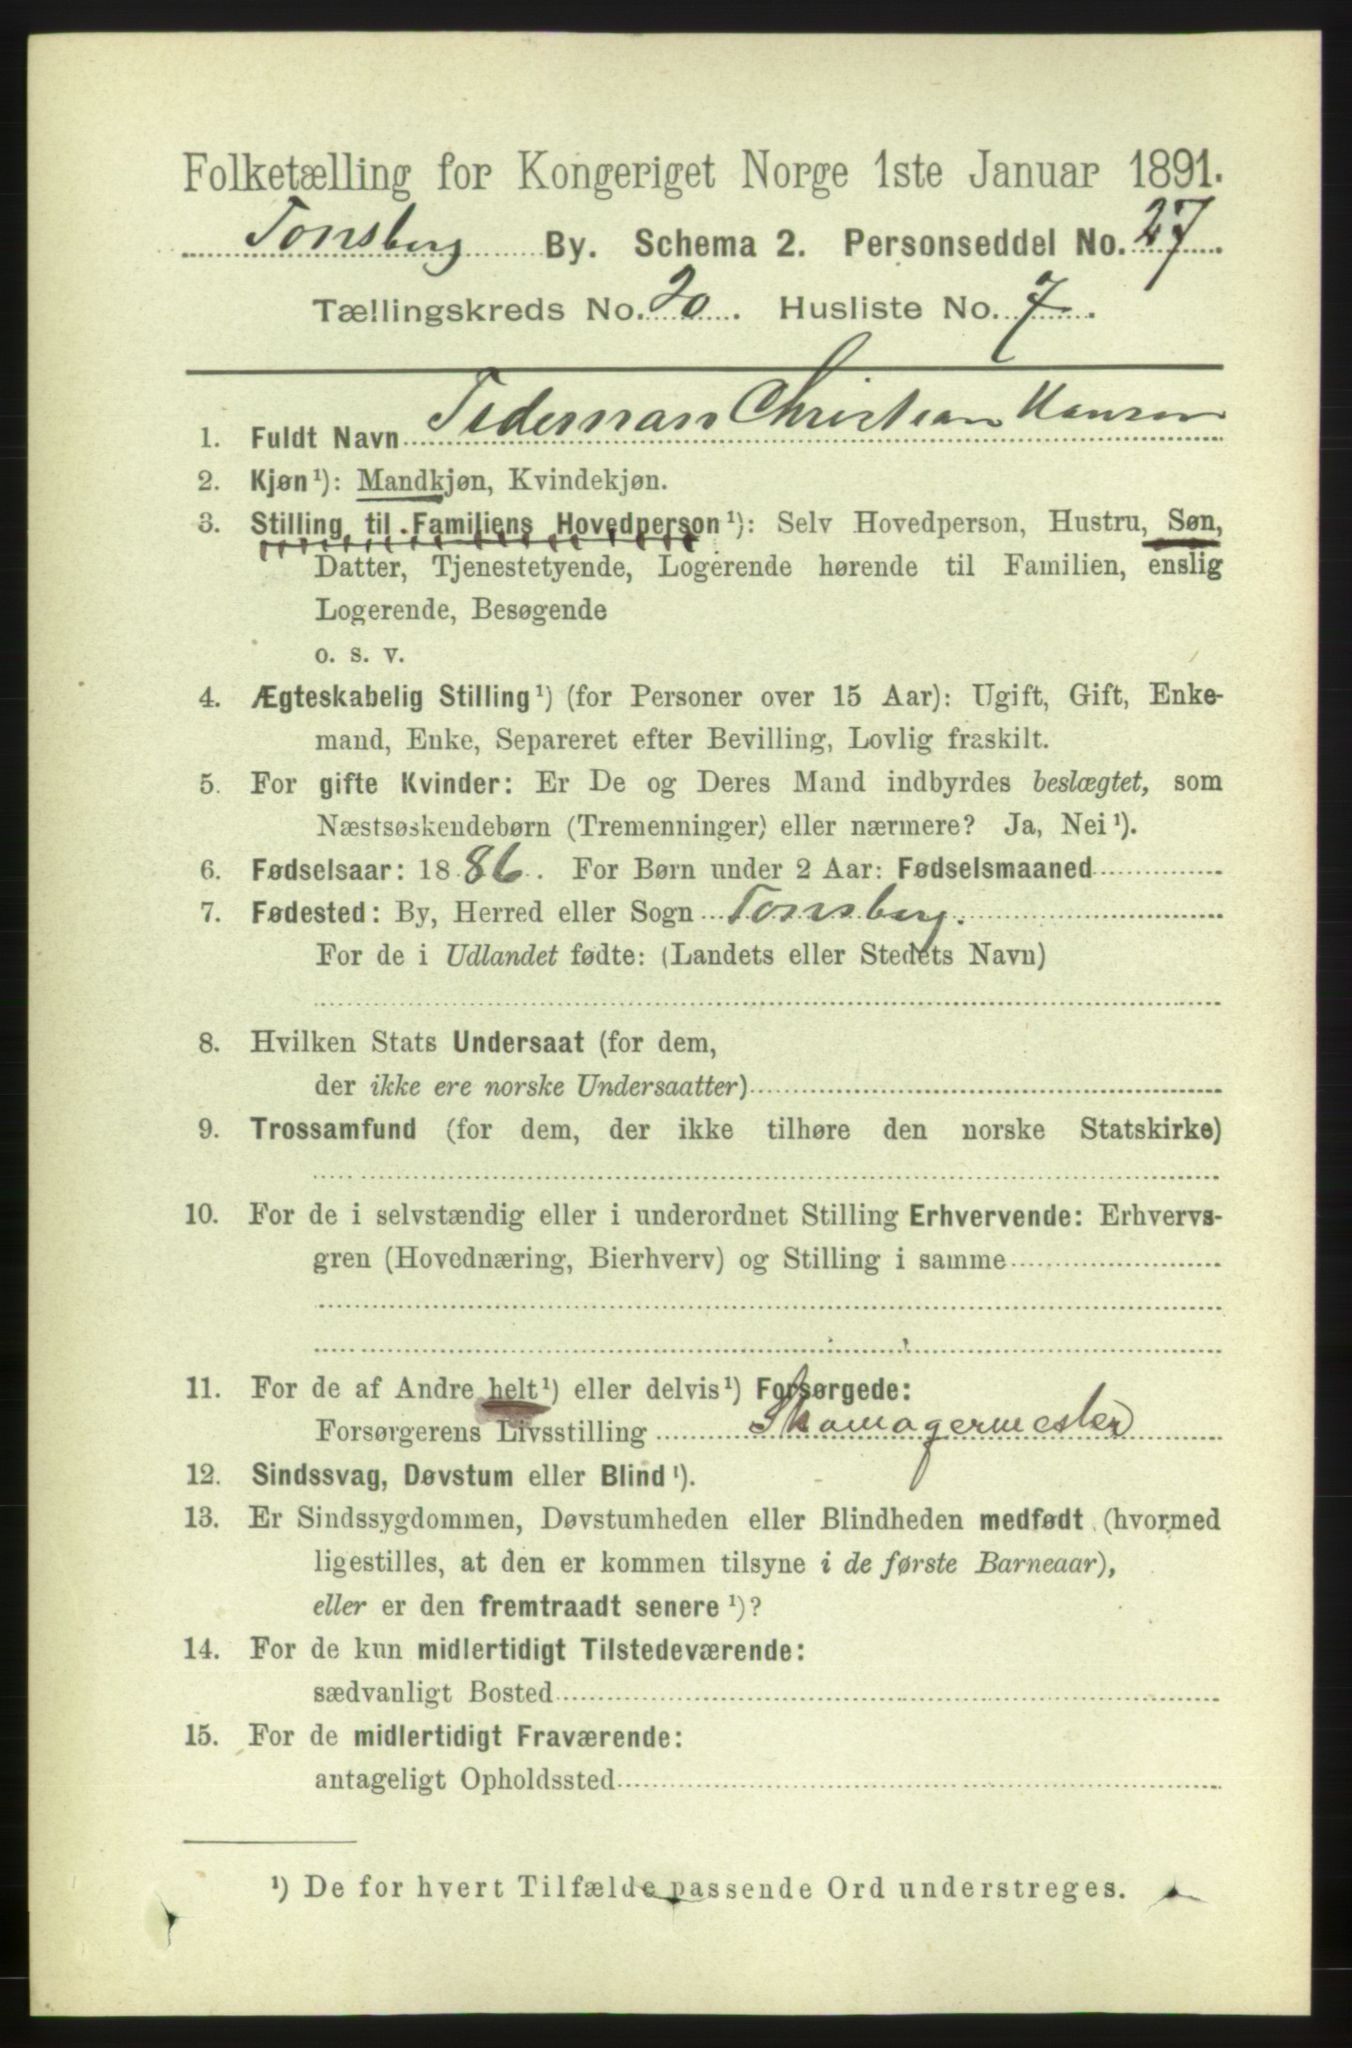 Folketælling for Kongeriget Norge 1ste Januar 1891.
Tonsberg By. Schema 2. Personseddel No. 27
Tællingskreds No. 20. Husliste No. 7.
1. Fuldt Navn Tideman Christian Hansen
2. Kjøn¹): Mandkjøn, Kvindekjøn.
3. Stilling til Familiens Hovedperson¹): Selv Hovedperson, Hustru, Søn,
Datter, Tjenestetyende, Logerende hørende til Familien, enslig
Logerende, Besøgende
o. s. v.
4. Ægteskabelig Stilling¹) (for Personer over 15 Aar): Ugift, Gift, Enke-
mand, Enke, Separeret efter Bevilling, Lovlig fraskilt.
5. For gifte Kvinder: Er De og Deres Mand indbyrdes beslægtet, som
Næstsøskendebørn (Tremenninger) eller nærmere? Ja, Nei¹).
6. Fødselsaar: 1886. For Børn under 2 Aar: Fødselsmaaned
7. Fødested: By, Herred eller Sogn Tonsberg.
For de i Udlandet fødte: (Landets eller Stedets Navn)
8. Hvilken Stats Undersaat (for dem,
der ikke ere norske Undersaatter)
9. Trossamfund (for dem, der ikke tilhøre den norske Statskirke)
10. For de i selvstændig eller i underordnet Stilling Erhvervende: Erhvervs-
gren (Hovednæring, Bierhverv) og Stilling i samme
11. For de af Andre helt¹) eller delvis¹) Forsørgede:
Forsørgerens Livsstilling Skomagermester
12. Sindssvag, Døvstum eller Blind¹).
13. Er Sindssygdommen, Døvstumheden eller Blindheden medfødt (hvormed
ligestilles, at den er kommen tilsyne i de første Barneaar),
eller er den fremtraadt senere¹)?
14. For de kun midlertidigt Tilstedeværende:
sædvanligt Bosted
15. For de midlertidigt Fraværende:
antageligt Opholdssted
¹) De for hvert Tilfælde passende Ord understreges.